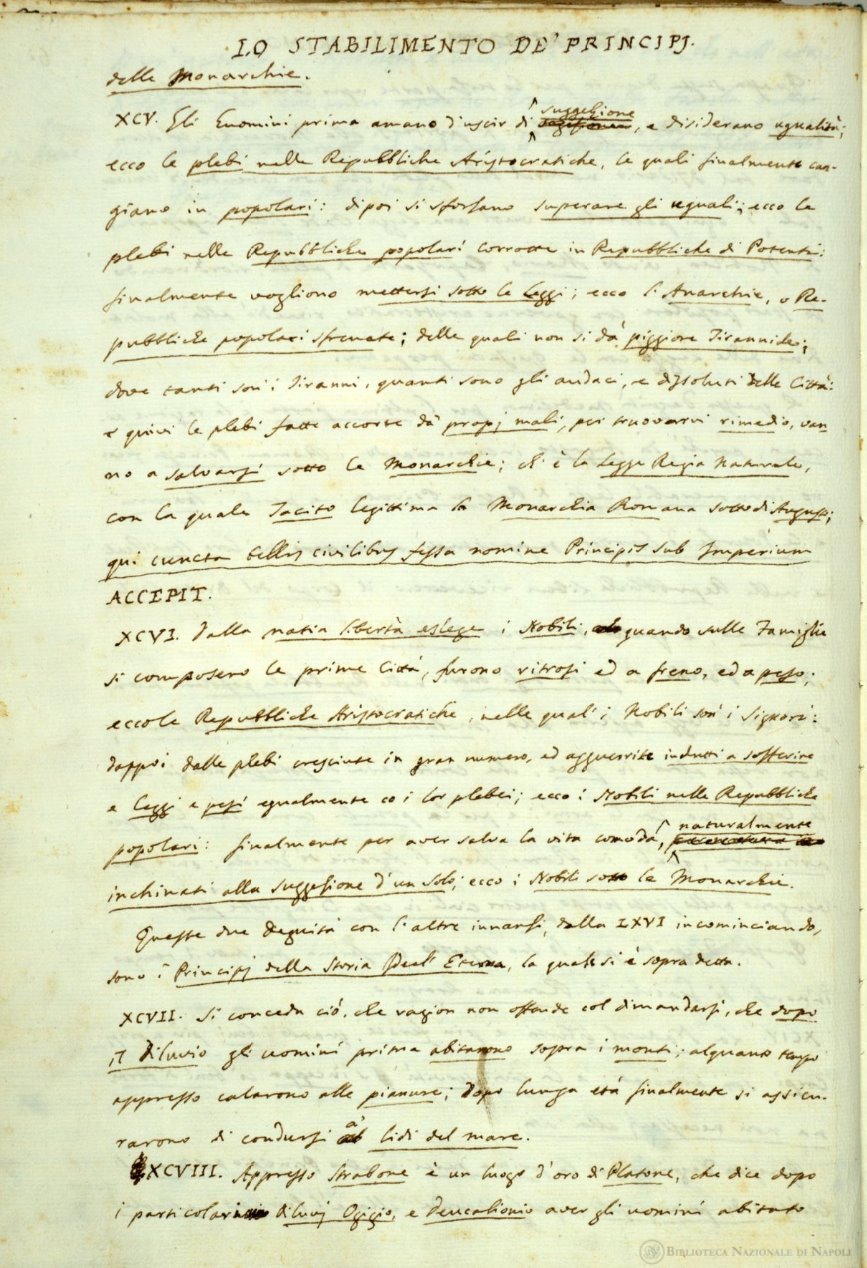 LO STABILIMENTO DE' PRINCIPJ.
delle Monarchie.
XCV. Gli Huomini prima amano d'uscir di suggezione, e disiderano ugualità;
ecco le plebi nelle Repubbliche Aristocratiche, le quali finalmente can-
giano in popolari: dipoi si sforzano superare gli uguali; ecco le
plebi nelle Repubbliche popolari corrotte in Repubbliche di Potenti:
finalmente vogliono mettersi sotto le Leggi; ecco l'Anarchie, o Re-
pubbliche popolari sfrenate; delle quali non si dà piggiore Tirannide;
dove tanti son' i Tiranni, quanti sono gli audaci, e dissoluti delle Città:
e quivi le plebi fatte accorte da' propj mali, per truovarvi rimedio, van
no a salvarsi sotto le Monarchie; ch' è la Legge Regia Naturale,
con la quale Tacito legittima la Monarchia Romana sotto di Augusto;
qui cuncta bellis civilibus fessa nomine Principis sub Imperium
ACCEPIT.
XCVI. Dalla natia libertà eslege i Nobili, quando sulle Famiglie
si composero le prime Città, furono ritrosi ed a freno, ed a peso;
eccole Repubbliche Aristocratiche, nelle qual' i Nobili son' i Signori:
dappoi dalle plebi cresciute in gran numero, ed agguerrite indutti a sofferire
e Leggi e pesi egualmente co i lor plebei; ecco i Nobili nelle Repubbliche
popolari: finalmente per aver salva la vita comoda, naturalmente
inchinati alla suggezione d'un solo; ecco i Nobili sotto le Monarchie.
Queste due Degnità con l'altre innanzi, dalla LXVI incominciando,
sono i Principj della Storia Ideal' Eterna, la quale si è sopra detta.
XCVII. Si conceda ciò, che ragion non offende col dimandarsi, che dopo
il Diluvio gli uomini prima abitarono sopra i monti; alquanto tempo
appresso calarono alle pianure; Dopo lunga età finalmente si assicu-
rarono di condursi a' lidi del mare.
XCVIII. Appresso Strabone è un luogo d'oro di Platone, che dice dopo
i particolari Diluvj Ogigio, e Deucalionio aver gli uomini abitato
BIBLIOTECA NAZIONALE DI NAPOLI